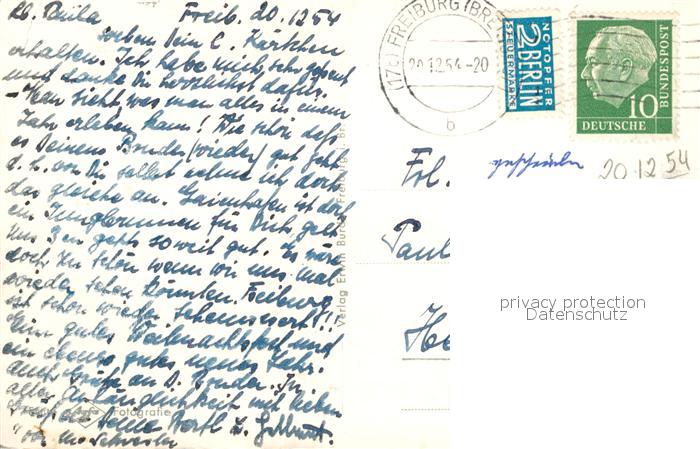 Lb. Paula Freib. 20.12.54
soeben Dein l. Kärtchen
erhalten. Ich habe mich sehr gefreut
und danke Dir herzlichst dafür.
– Man sieht, was man alles in einem
Jahr erleben kann! Wie schön daß
es Deinem Bruder (wieder) gut geht
d. h. von Dir selbst nehme ich doch
das gleiche an. Gaienhofen ist doch
ein Jungbrunnen für Dich, gelt.
Uns 3en gehts soweit gut. Es wäre
doch zu schön wenn wir uns mal
wieder sehen könnten. Freiburg
ist schon wieder sehenswert!!
Ein gutes Weihnachtsfest und
ein ebenso gutes neues Jahr.
Auch Grüße an d. Bruder. In
alter Anhänglichkeit mit lieben
Grüßen
von m. Schwester
Fotografie
Verlag Erwin Burda, Freiburg i. Br.
(17b) FREIBURG (BR
20.12.54.-20
b
NOTOPFER
2 BERLIN
STEUERMARKE
10
DEUTSCHE
BUNDESPOST
geschrieben 20.12.54
Frl.
Paul
He
privacy protection
Datenschutz